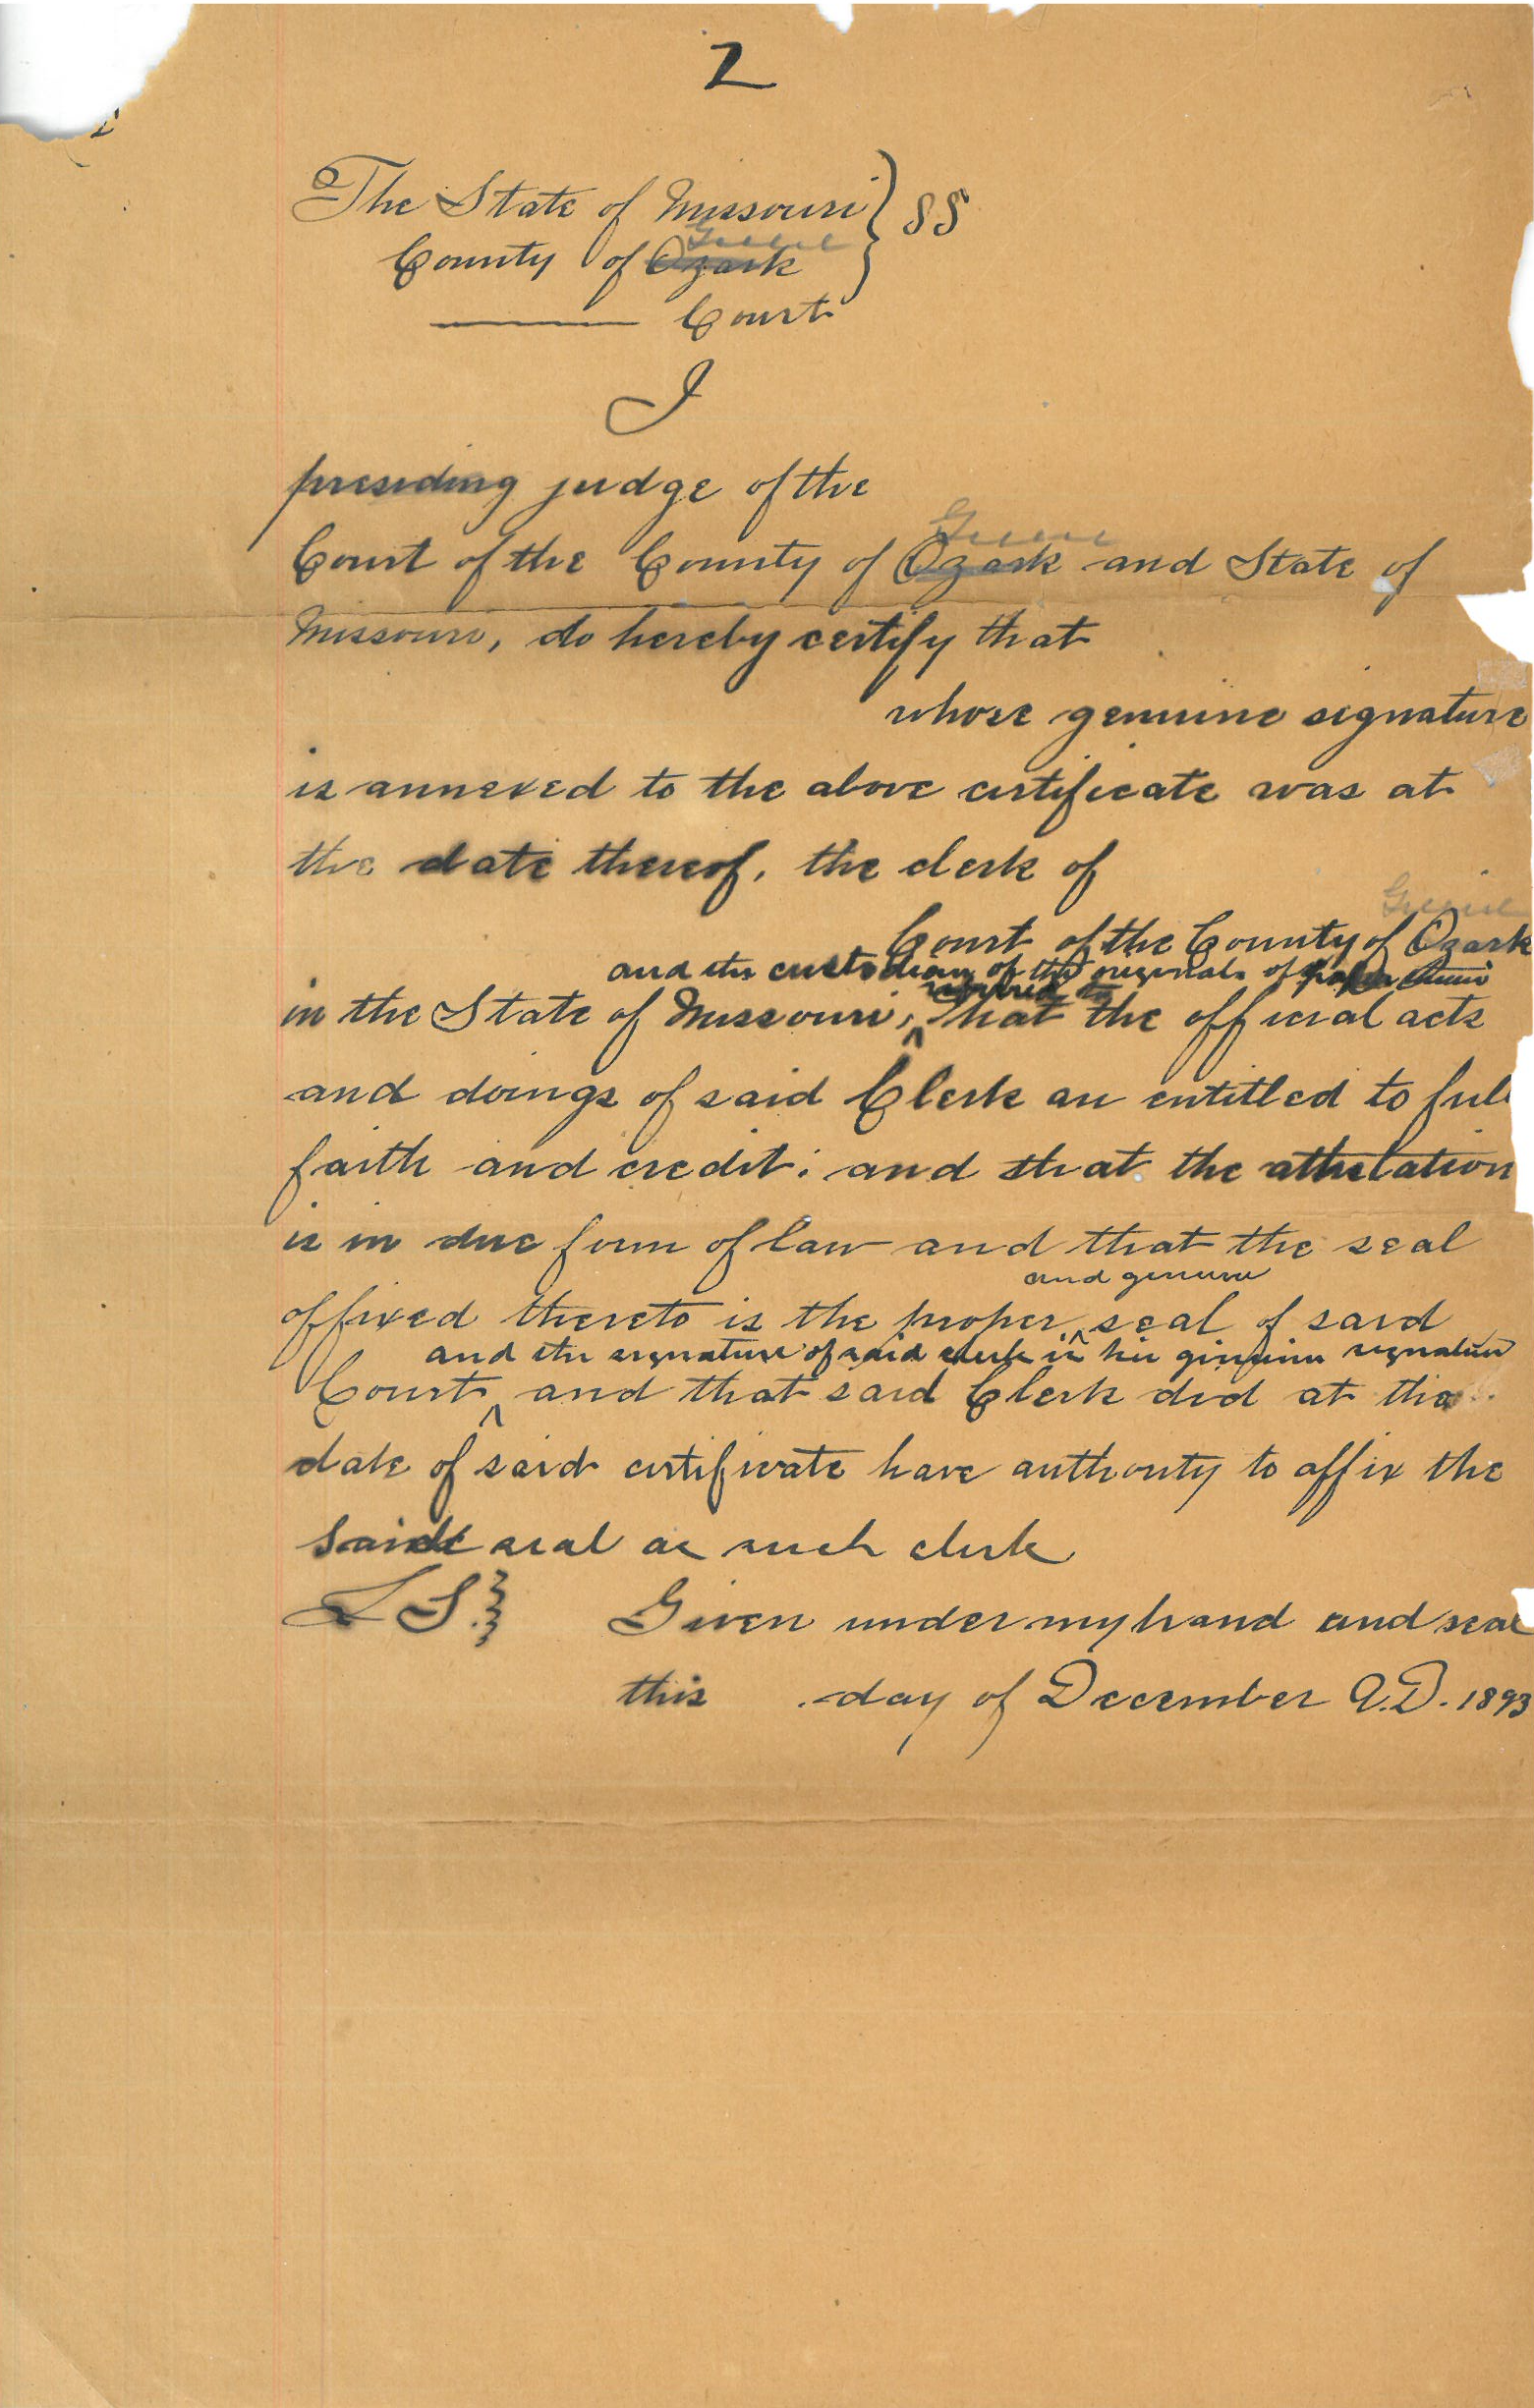 2
The State of Missouri } SS
Greene
County of Ozark
Court
I
presiding judge of the
Greene
Court of the County of Ozark and State of
Missouri, do hereby certify that
whose genuine signature
is annexed to the above certificate was at
the date thereof, the clerk of
Greene
Court of the County of Ozark
and the custodian of the originals of papers
referred to
in the State of Missouri, that the official acts
and doings of said Clerk are entitled to full
faith and credit: and that the attestation
is in due form of law and that the seal
and genuine
affixed thereto is the proper seal of said
and the signature of said clerk is his genuine signature
Court, and that said Clerk did at the
date of said certificate have authority to affix the
said seal as such clerk
L S.} Given under my hand and seal
this day of December A.D. 1893